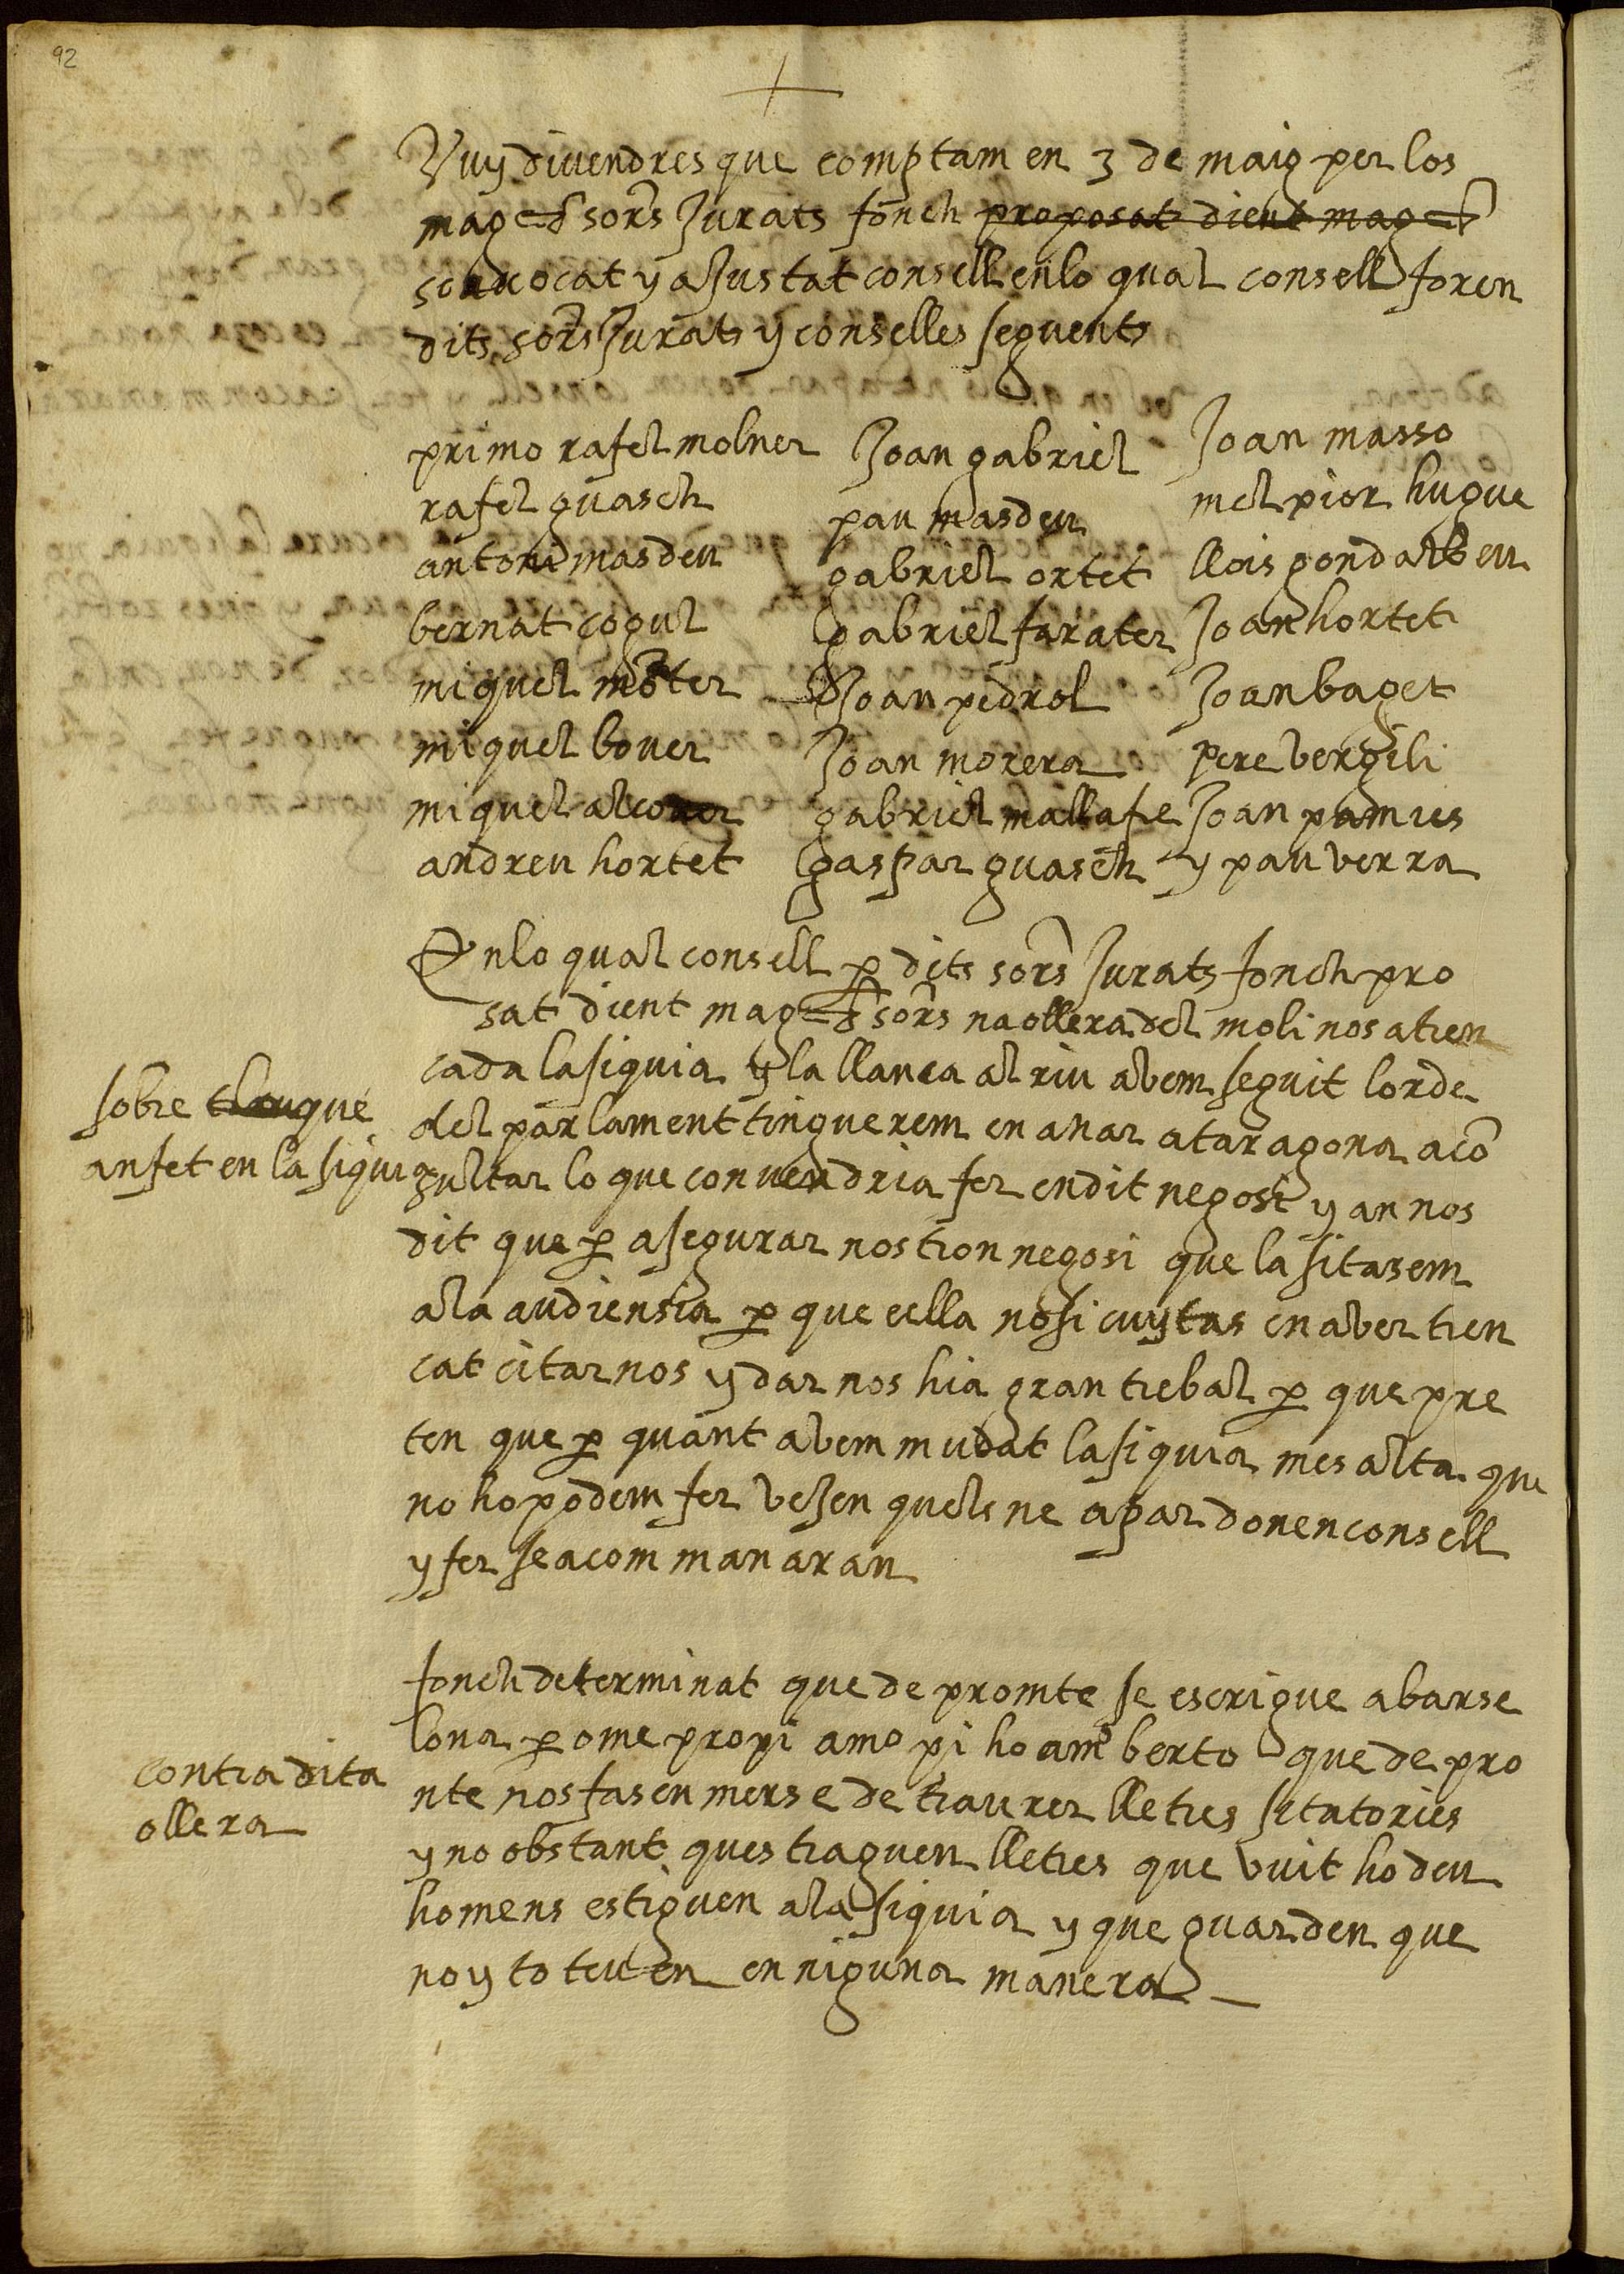 92
Vuy divendres que comptam en 3 de maig per los
mag.chs sors Jurats fonch proposat dient mag.chs
convocat y aJustat consell enlo qual consell foren
dits sors Jurats y conselles seguents
primo rafel molner
rafel guasch
antoni masdeu
bernat cogul
miquel moster
miquel bover
miquel alcover
andreu hortet
Joan gabriel
pau masdeu
gabriel ortet
gabriel farater
Joan pedrol
Joan morera
gabriel mallafre
gaspar guasch
Joan masso
melpior hugue
llois gondalbeu
Joan hortet
Joan baget
pere vergili
Joan pamies
y pau verra
Enlo qual consell p dits sors Jurats fonch pro
sat dient mag.chs sors na ollera del moli nos atren
cada la siquia y la llanca al riu avem seguit lorde
del parlament tinguerem en anar a taragona a co
sultar lo que convendria fer en dit negosi y an nos
dit que p asegurar nostron negosi que la sitasem
ala audiensia p que eella nosi cuytas en aver tren
cat citarnos y darnos hia gran trebal p que pre
ten que p quant avem mudat la siquia mes alta que
no ho podem fer veJen quels ne apar donen consell
y fer se a com manaran
sobre que
an fet en la siquia
fonch determinat que de promte se escrigue a barse
lona p ome propi a mo pi ho a mo berto que de pro
nte nos fasen merse de traurer lletres sitatories
y no obstant ques traguen lletres que vuit ho deu
homens estiguen ala siquia y que guarden que
no y toteuen en niguna manera
contra dita
ollera